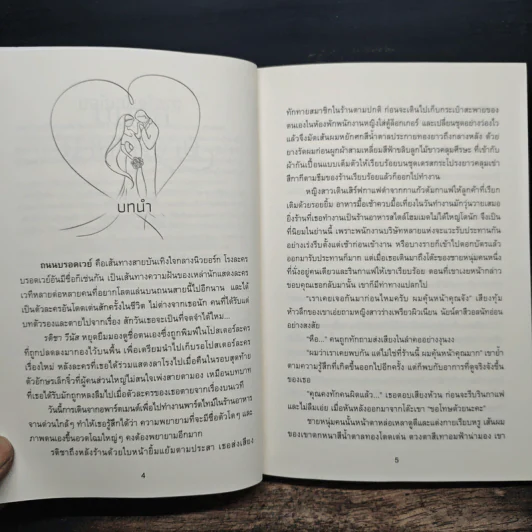 บทนำ
ถนนบรอดเวย์ คือเส้นทางสายบันเทิงใจกลางนิวยอร์ก โรงละคร
บรอดเวย์อันมีชื่อก็เช่นกัน เป็นเส้นทางความฝันของเหล่านักแสดงละคร
เวทีหลายต่อหลายคนที่อยากโลดแล่นบนถนนสายนี้ไปอีกนาน และได้
เป็นตัวละครอันโดดเด่นสักครั้งในชีวิต ไม่ต่างจากเธอนัก คนที่ได้รับแต่
บทตัวรองและตายไปจากเรื่อง สักวันเธอจะเป็นที่จดจำได้ไหม...
รติชา วีนัส หยุดยืมมองดูชื่อตนเองซึ่งถูกพิมพ์ในโปสเตอร์ละคร
ที่ถูกปลดลงมากองไว้บนพื้น เพื่อเตรียมนำไปเก็บรอโปสเตอร์ละคร
เรื่องใหม่ หลังละครที่เธอได้ร่วมแสดงลาโรงไปเมื่อคืนในรอบสุดท้าย
ตัวอักษรเล็กจิ๋วที่ผู้คนส่วนใหญ่ไม่สนใจเพ่งสายตามอง เหมือนบทบาท
ที่เธอได้รับมักถูกลงลืมไปเมื่อตัวละครของเธอตายจากเรื่องบนเวที
วันนี้การเดินจากอพาร์ตเมนต์เพื่อไปทำงานพาร์ตไทม์ในร้านอาหาร
จานด่วนใกล้ๆ ทำให้เธอรู้สึกได้ว่า ความพยายามที่จะมีชื่อตัวโตๆ และ
ภาพตนเองขึ้นอวดโฉมใหญ่ๆ คงต้องพยายามอีกมาก
รติชาถึงหลังร้านด้วยใบหน้ายิ้มแย้มตามประสา เธอส่งเสียง
4
ทักทายสมาชิกในร้านตามปกติ ก่อนจะเดินไปเก็บกระเป๋าสะพายของ
ตนเองในห้องพักพนักงานหญิงใส่ตู้ล็อกเกอร์ และเปลี่ยนชุดอย่างว่องไว
แล้วจึงมัดเส้นผมหยักศกสีน้ำตาลประกายทองยาวถึงกลางหลัง ด้วย
อย่างรัดผมก่อนผูกผ้าสามเหลี่ยมสีฟ้าขลิบลูกไม้ขาวคลุมศีรษะ ที่เข้ากับ
ผ้ากันเปื้อนแบบเต็มตัวให้เรียบร้อยบนชุดเดรสกระโปรงยาวคลุมเข่า
สีกาก็ตามธีมของร้านเรียบร้อยแล้วก็ออกไปทำงาน
หญิงสาวเดินเสิร์ฟกาแฟดำจากกาแก้วต้มกาแฟให้ลูกค้าที่เรียก
เติมด้วยรอยยิ้ม อาหารมื้อเช้าควบเที่ยงในวันทำงานมักวุ่นวายเสมอ
ยิ่งร้านที่เธอทำงานเป็นร้านอาหารสไตล์โฮมเมดไม่ได้ใหญ่โตนัก จึงเป็น
ที่นิยมในย่านนี้ เพราะพนักงานบริษัทหลายแห่งจะแวะรับประทานกัน
อย่างเร่งรีบตั้งแต่เช้าก่อนเข้างาน หรือบางรายก็เข้าไปตอกบัตรแล้ว
ออกมารับประทานก็มาก แต่เมื่อเธอเดินมาถึงโต๊ะของชายหนุ่มคนหนึ่ง
ที่นั่งอยู่คนเดียวและรินกาแฟให้เขาเรียบร้อย ตอนที่เขาเงยหน้ากล่าว
ขอบคุณเธอกลับมานั้น เขาก็มีท่าทางแปลกไป
“เราเคยเจอกันมาก่อนไหมครับ ผมคุ้นหน้าคุณจัง” เสียงทุ้ม
ห้าวลึกของเขาเอ่ยถามหญิงสาวร่างเพรียวผิวเนียน นัยน์ตาสีวอลนัทอ่อน
อย่างสงสัย
“คือ...” คนถูกทักถามส่งเสียงในลำคออย่างงุนงง
“ผมว่าเราเคยพบกัน แต่ไม่ใช่ที่ร้านนี้ ผมคุ้นหน้าคุณมาก” เขาย้ำ
ตามความรู้สึกที่เกิดขึ้นออกไปอีกครั้ง แต่ก็พบกับอาการที่ดูจริงจังขึ้น
ของเธอ
“คุณคงทักคนผิดแล้ว...” เธอตอบเสียงห้วน ก่อนจะรีบรินกาแฟ
และไม่ลืมเอ่ย เมื่อหันหลังออกมาจากโต๊ะเขา “ขอโทษด้วยนะคะ”
ชายหนุ่มคนนั้นหน้าตาหล่อเหลาดูดีและแต่งกายเรียบหรู เส้นผม
ของเขาดกหนาสีน้ำตาลทองโดดเด่น ดวงตาสีเทาอมฟ้าน่ามอง เขา
5